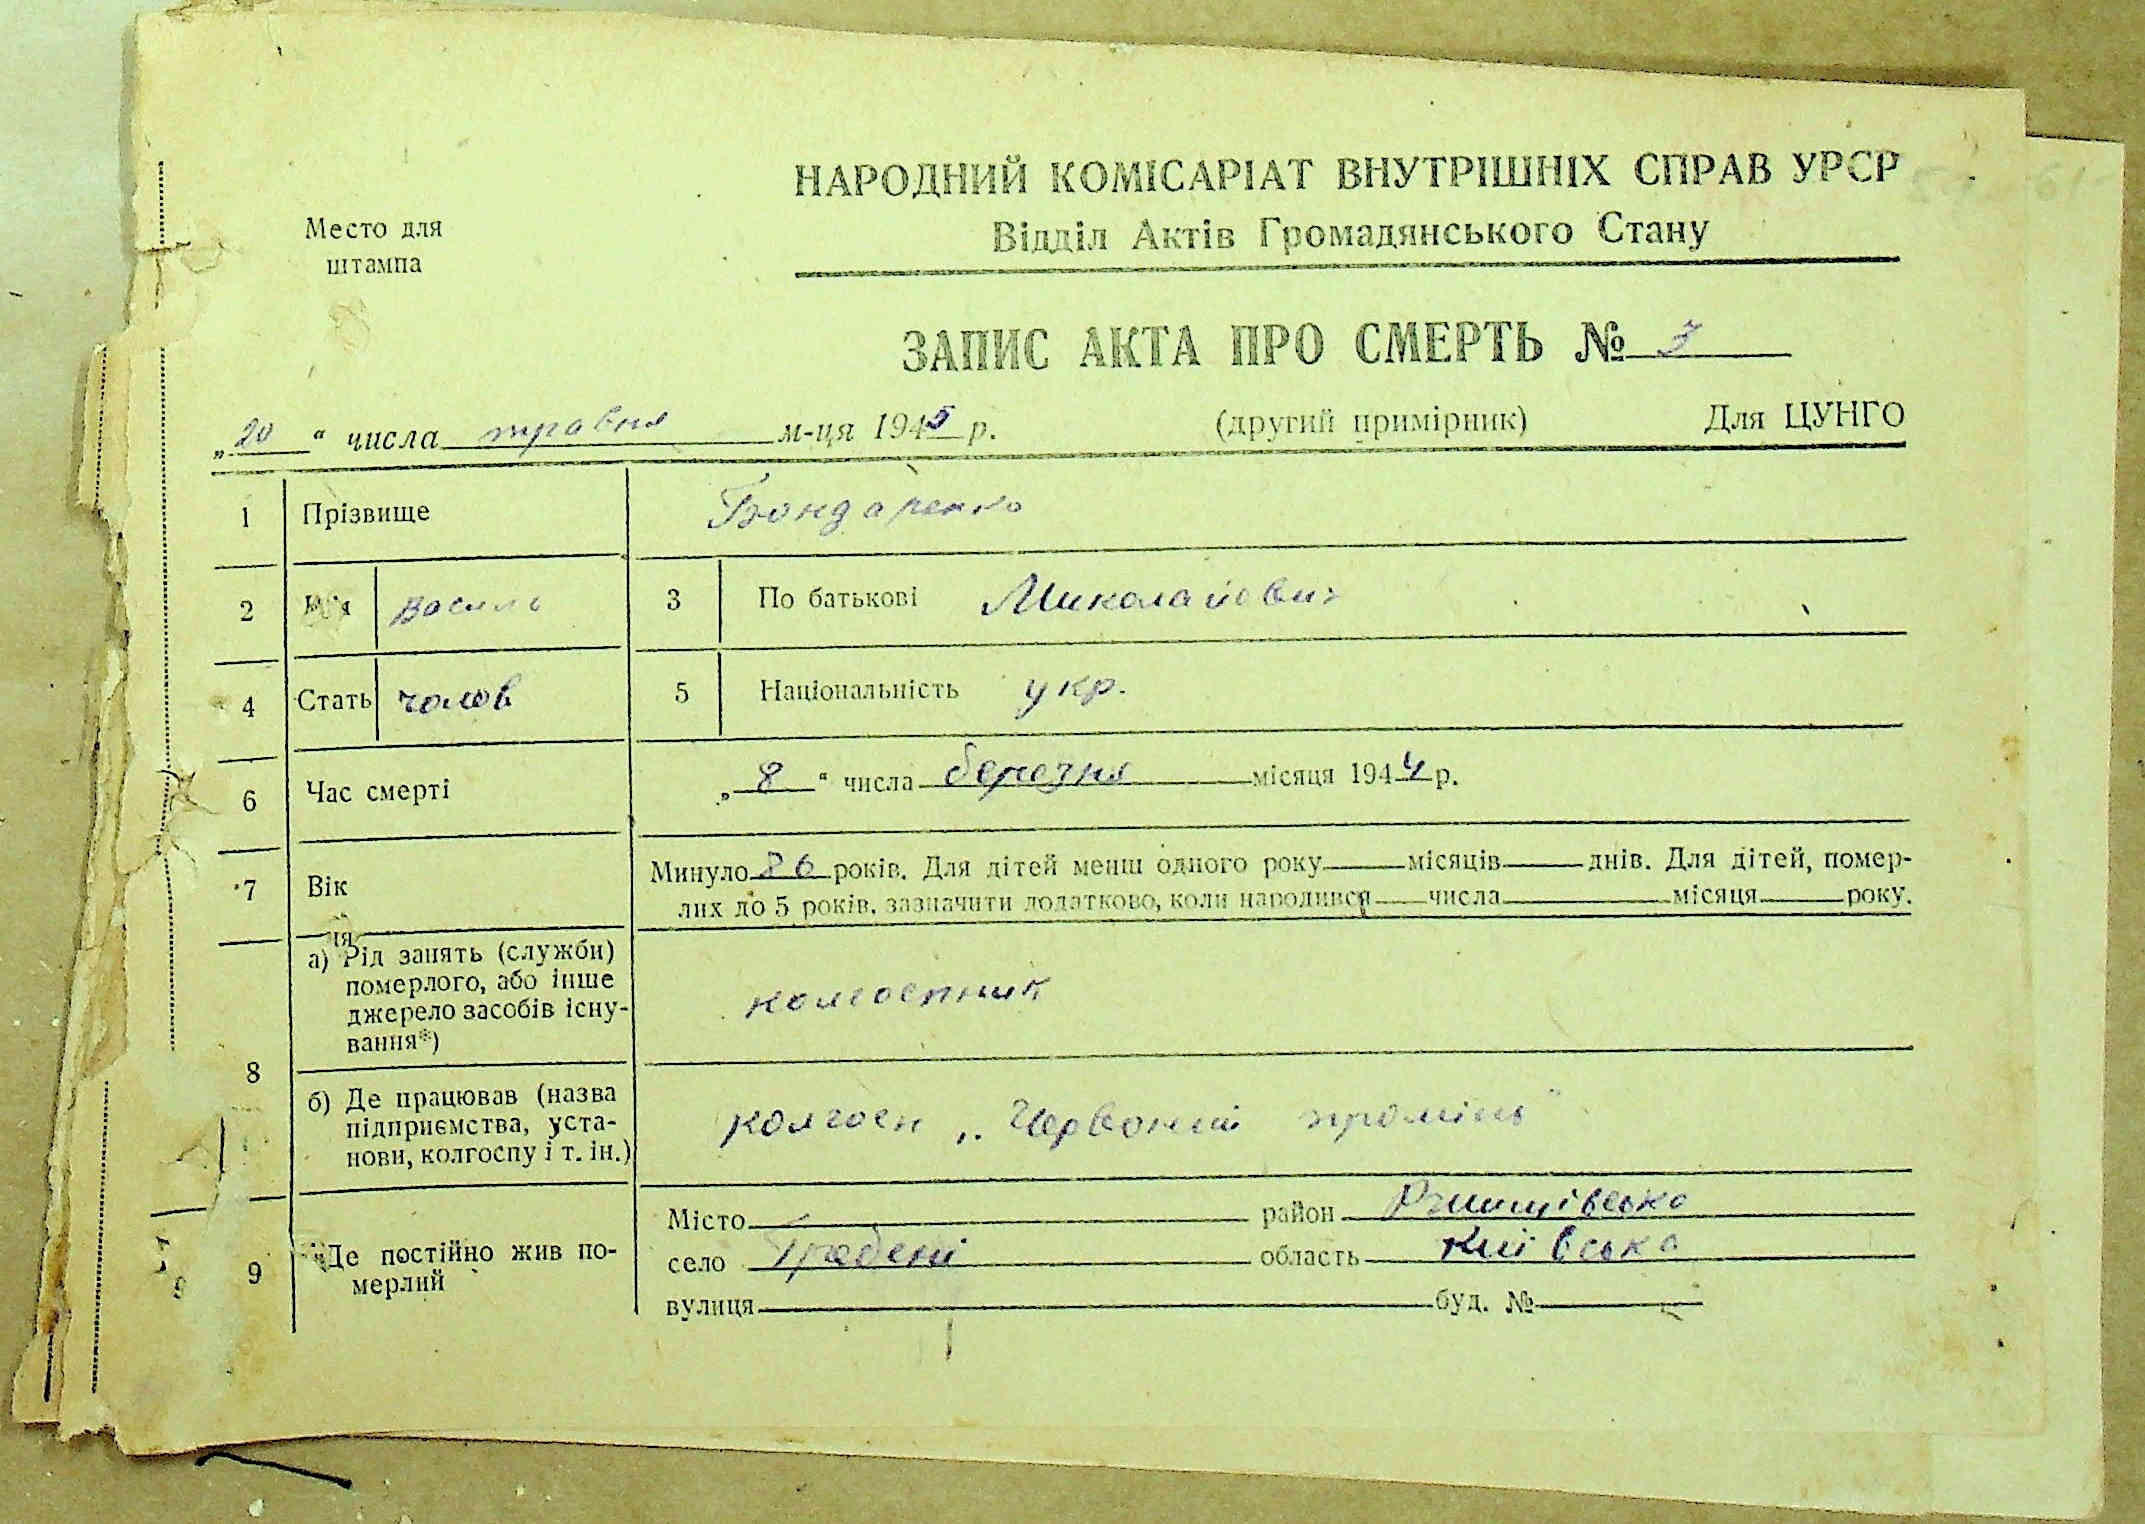 НАРОДНИЙ КОМІСАРІАТ ВНУТРІШНІХ СПРАВ УРСР
Відділ Актів Громадянського Стану
Место для
штампа
ЗАПИС АКТА ПРО СМЕРТЬ № 3
„20“ числа травня м-ця 1945 р. (другий примірник) Для ЦУНГО
1 Прізвище Бондаренко
2 Ім'я Василь 3 По батькові Миколайович
4 Стать чолов 5 Національність укр.
6 Час смерті „8“ числа березня місяця 1944 р.
7 Вік Минуло 86 років. Для дітей менш одного року місяців днів. Для дітей, помер-
лих до 5 років, зазначити додатково, коли народився числа місяця року.
8 а) Рід занять (служби)
померлого, або інше
джерело засобів існу-
вання*)
колгоспник
б) Де працював (назва
підприємства, уста-
нови, колгоспу і т. ін.)
колгосп „Червоний промінь"
9 Де постійно жив по-
мерлий
Місто район Ржищівська
село Гребені область Київська
вулиця буд. №